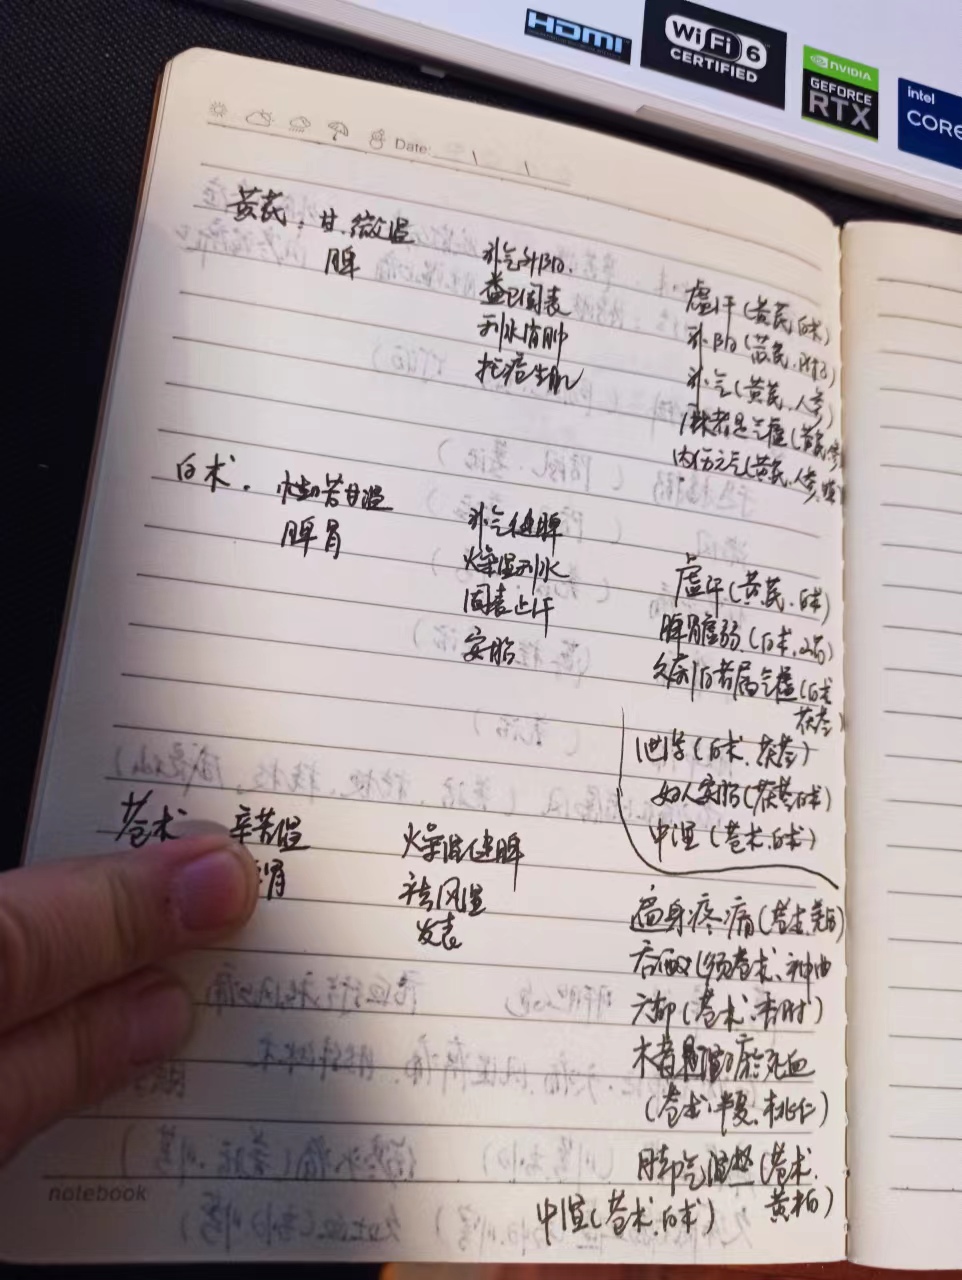 HDMI
WiFi 6
CERTIFIED
NVIDIA
GEFORCE
RTX
intel
CORE
Date:
黄芪，甘.微温
脾
补气升阳.
益卫固表
利水消肿
托疮生肌
虚汗(黄芪.白术)
补阳(黄芪.附子)
补气(黄芪.人参)
麻者是气虚(黄芪.参
内伤元气(黄芪.人参.
白术.
苦甘温
脾胃
补气健脾
燥湿利水
固表止汗
安胎
虚汗(黄芪.白术)
脾胃虚弱.(白术.山药)
属气虚(白术
茯苓)
泄泻(白术.茯苓)
妇人安胎(茯苓白术)
中湿(苍术.白术)
苍术
辛苦温
胃
燥湿健脾
祛风湿
发表
遍身疼痛(苍术.羌活)
(须苍术.神曲
六郁(苍术.香附)
木者是湿痰死血
(苍术.半夏.桃仁
脚气湿热(苍术.
黄柏)
中湿(苍术.白术)
notebook